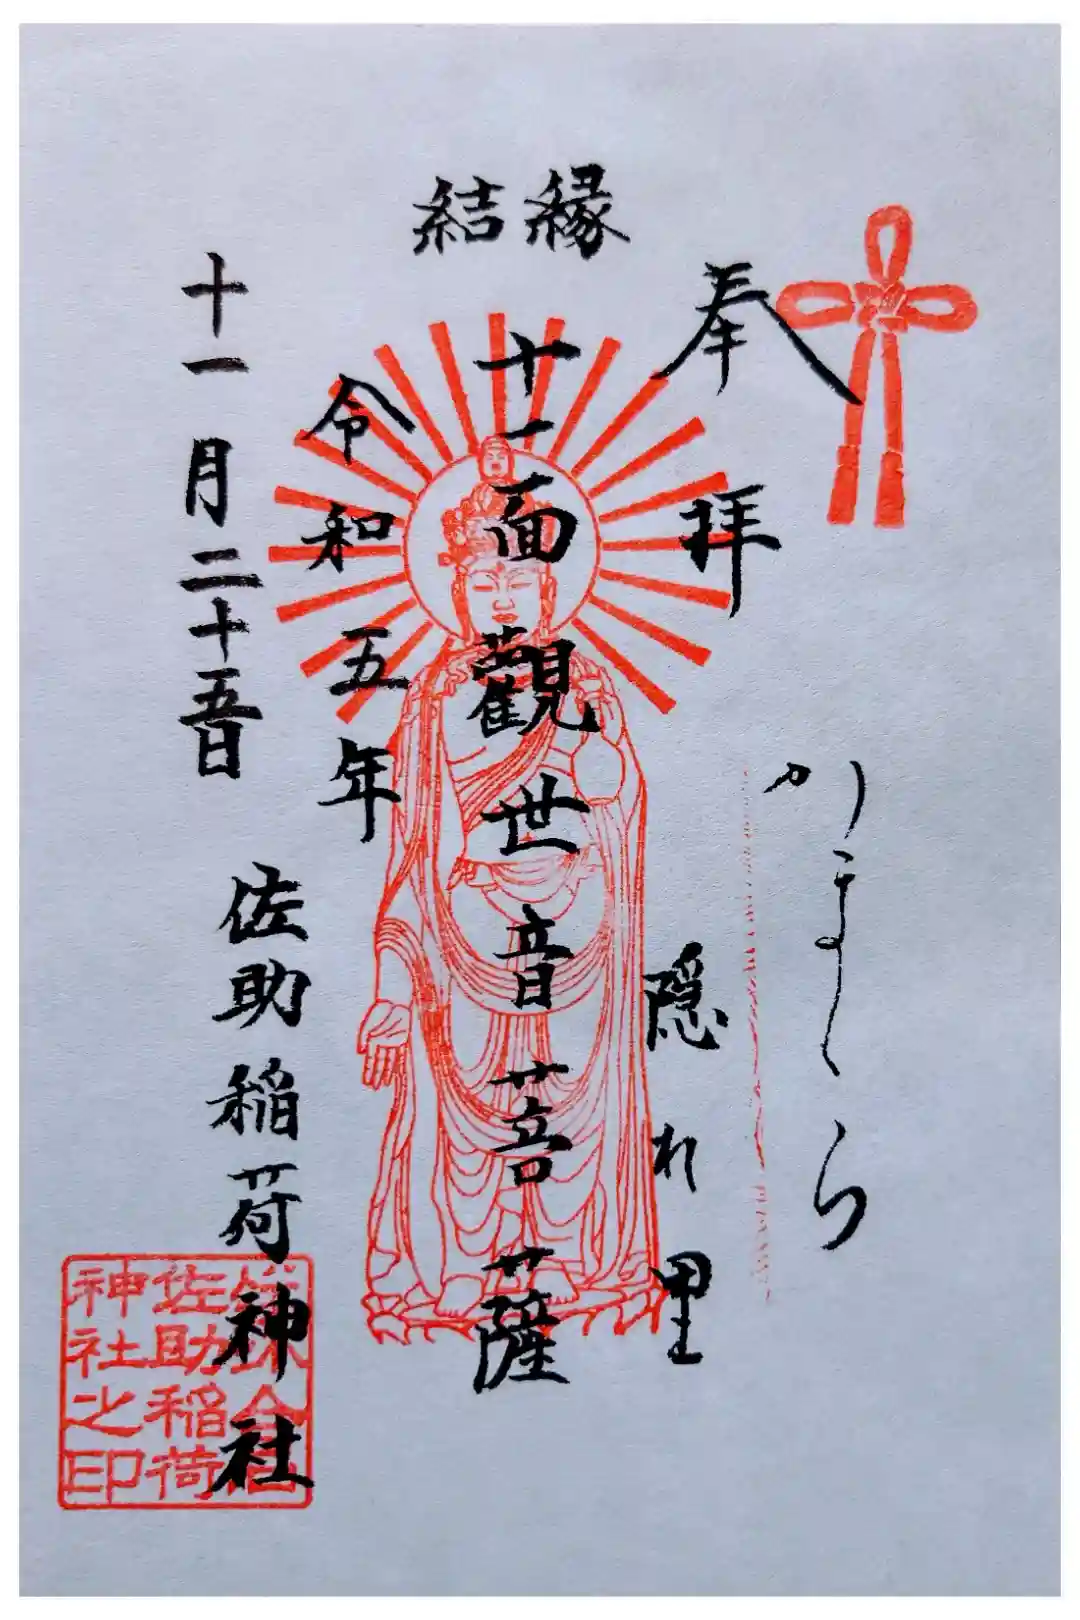 縁結
奉拝
かまくら
隠れ里
十一面観世音菩薩
令和五年
十一月二十五日
佐助稲荷神社
佐助稲荷
神社之印